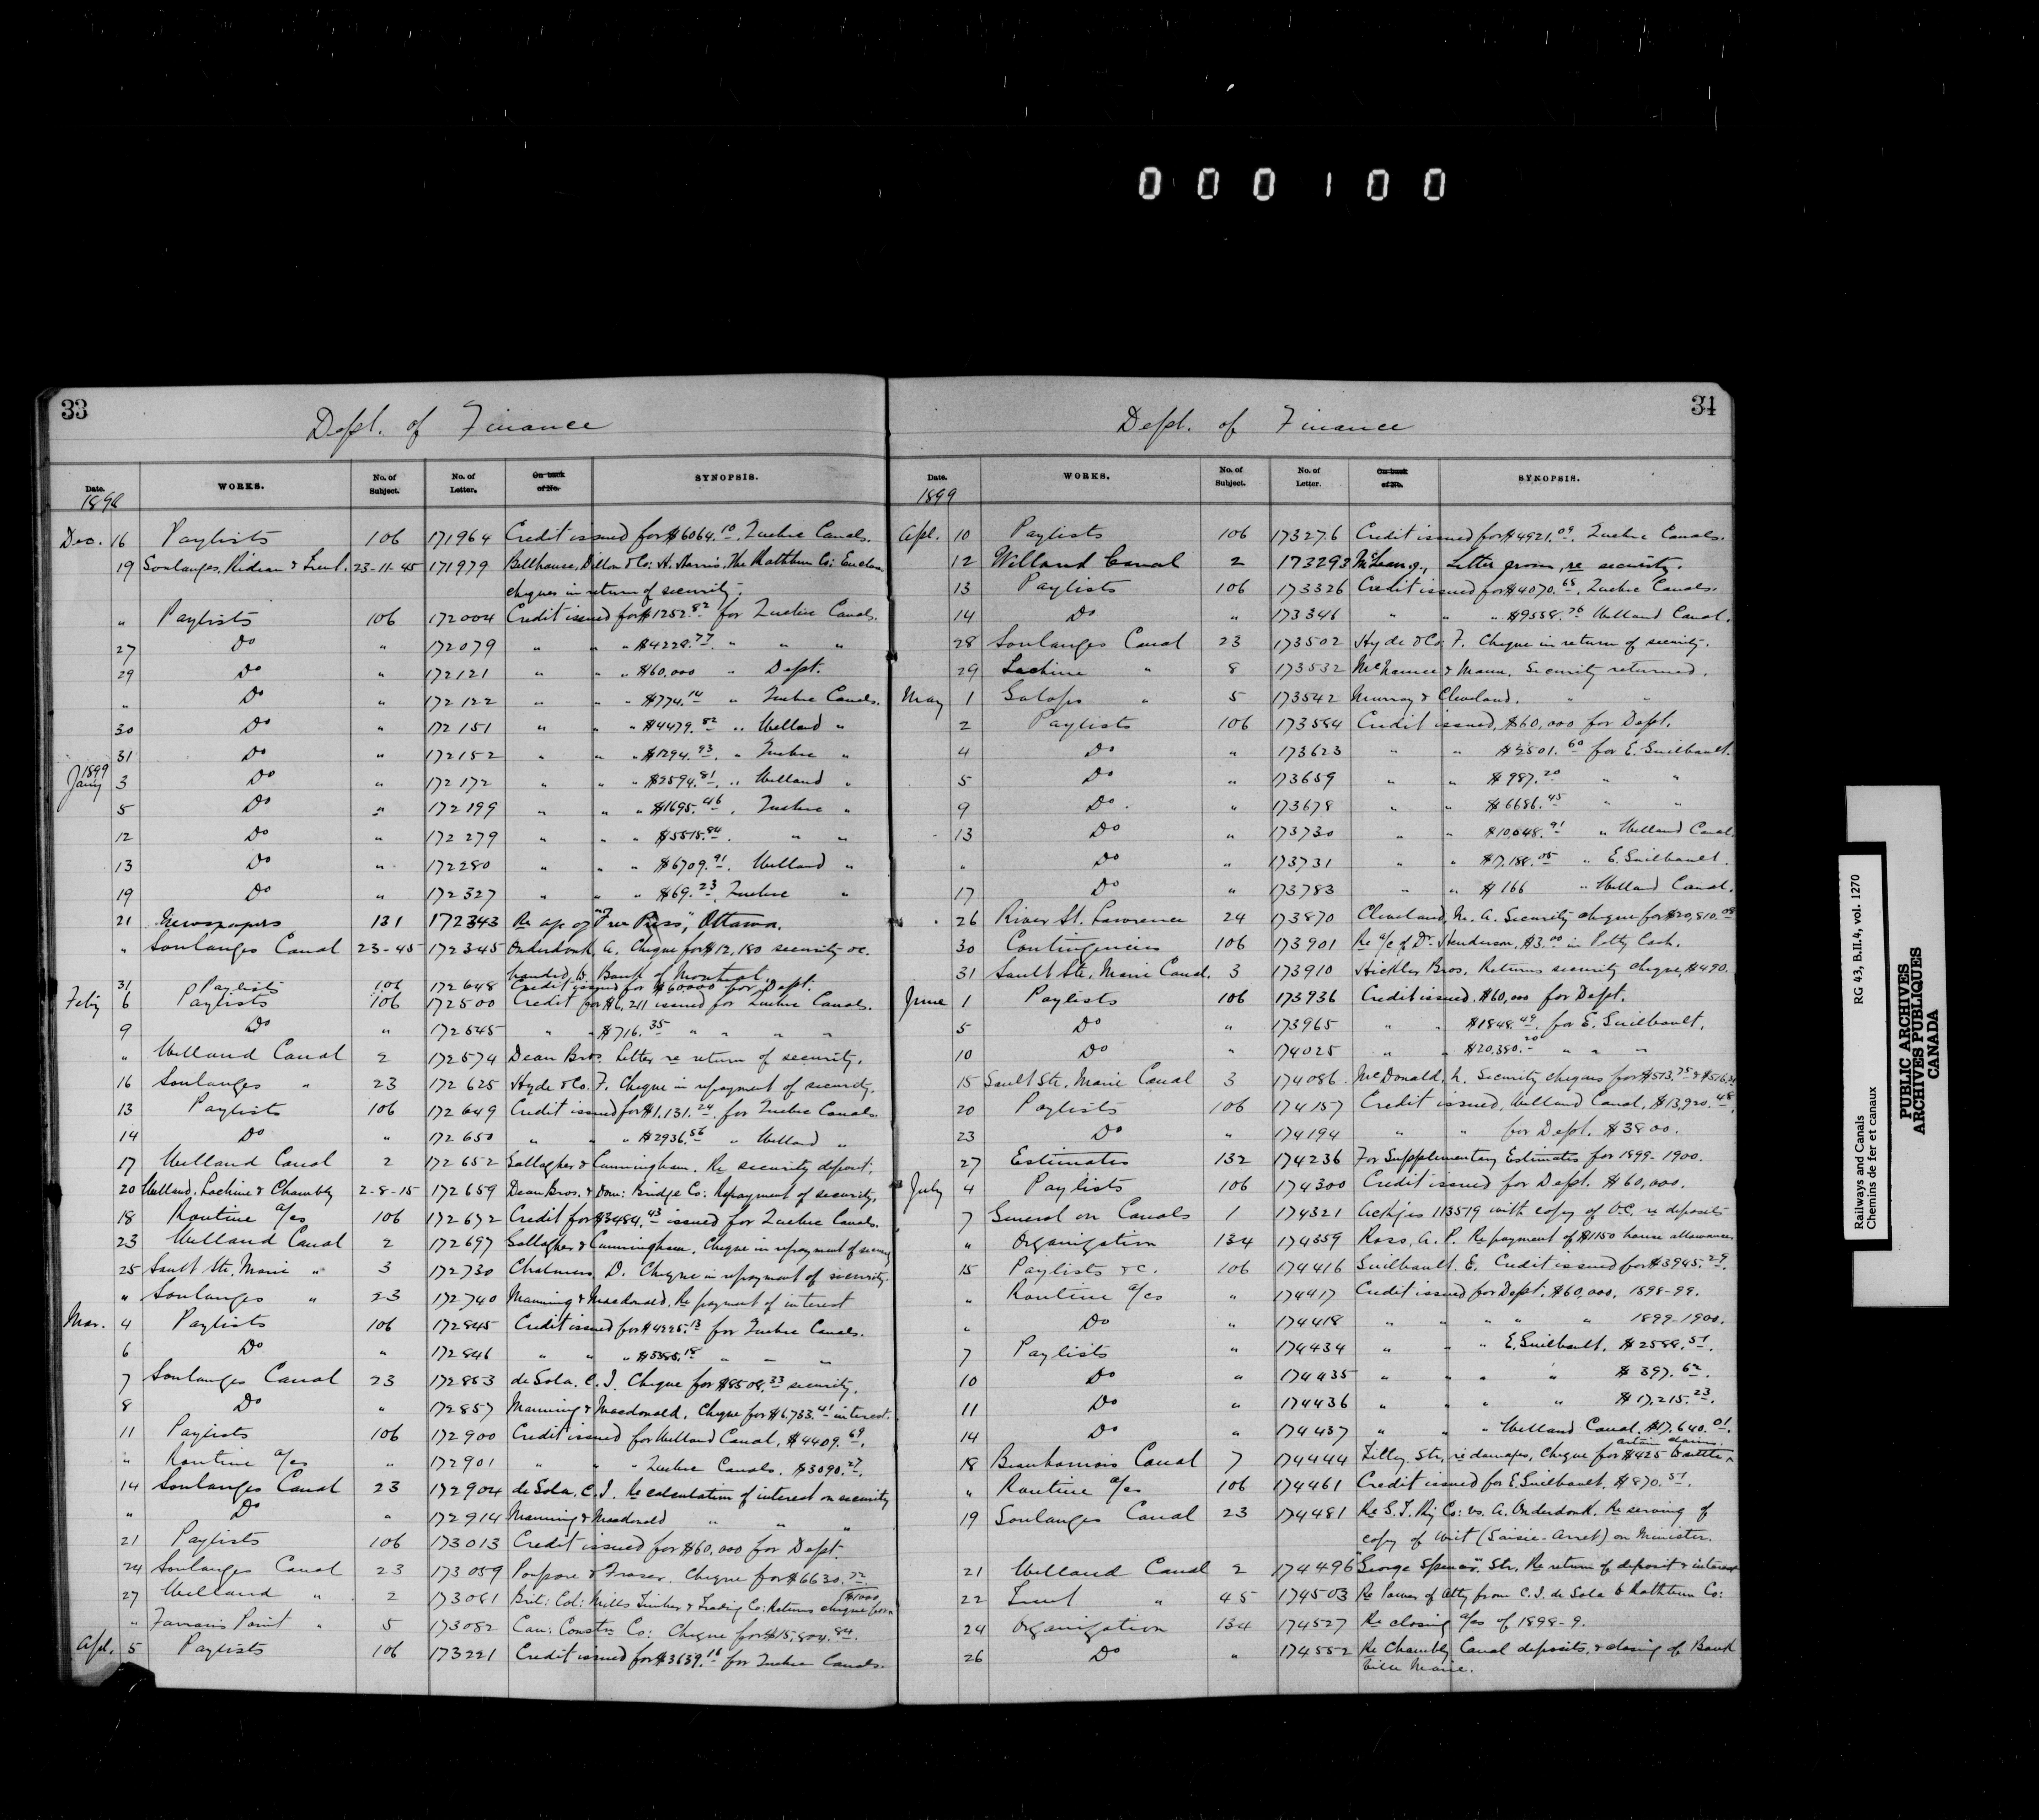 000100
33
Dept. of Finance
Date. WORKS. No. of Subject. No. of Letter. On back of No. SYNOPSIS.
1898
Dec. 16 Paylists 106 171964 Credit issued for $6064.10. Quebec Canals.
19 Soulanges, Rideau & Trent. 23-11-45 171979 Bellhouse, Dillon & Co: A. Harris, The Rathbun Co: Enclose
cheques in return of security.
" Paylists 106 172004 Credit issued for $1252.82 for Quebec Canals.
27 Do " 172079 " " " $4229.77. " " "
29 Do " 172121 " " " $60,000 " Dept.
" Do " 172122 " " " $774.14 " Quebec Canals.
30 Do " 172151 " " " $4479.82 " Welland "
31 Do " 172152 " " " $1294.93. " Quebec "
1899
Jany 3 Do " 172172 " " " $2594.81. " Welland "
5 Do " 172199 " " " $1695.46. Quebec "
12 Do " 172279 " " " $5515.84. " "
13 Do " 172280 " " " $6709.91. Welland "
19 Do " 172327 " " " $69.23. Quebec "
21 Newspapers 131 172343 Re a/c of "Free Press", Ottawa.
" Soulanges Canal 23-45 172345 Onderdonk, A. Cheque for $12,180 security &c.
handed to Bank of Montreal.
31 Paylists 106 172648 Credit issued for $60000 for Dept.
Feby 6 Paylists 106 172500 Credit for $6,211 issued for Quebec Canals.
9 Do " 172545 " " $716.35 " " " "
" Welland Canal 2 172574 Dean Bros. Letter re return of security.
16 Soulanges " 23 172625 Hyde & Co. F. Cheque in repayment of security.
13 Paylists 106 172649 Credit issued for $1,131.24. for Quebec Canals.
14 Do " 172650 " " " $2936.56 " Welland "
17 Welland Canal 2 172652 Gallagher & Cunningham. Re security deposit.
20 Welland, Lachine & Chambly 2-8-15 172659 Dean Bros. & Dom: Bridge Co: Repayment of security.
18 Routine a/cs 106 172672 Credit for $3484.43 issued for Quebec Canals.
23 Welland Canal 2 172697 Gallagher & Cunningham. Cheque in repayment of security
25 Sault Ste. Marie " 3 172730 Chalmers D. Cheque in repayment of security.
" Soulanges " 23 172740 Manning & Macdonald. Re payment of interest
Mar. 4 Paylists 106 172845 Credit issued for $4225.13 for Quebec Canals.
6 Do " 172846 " " " $3385.18 " " "
7 Soulanges Canal 23 172853 de Sola. C. I. Cheque for $8508.33 security.
8 Do " 172857 Manning & Macdonald. Cheque for $6,733.41 interest.
11 Paylists 106 172900 Credit issued for Welland Canal, $4409.69.
" Routine a/cs " 172901 " " " Quebec Canals. $3090.27.
14 Soulanges Canal 23 172904 de Sola, C. I. Re calculation of interest on security
" Do " 172914 Manning & Macdonald " " "
21 Paylists 106 173013 Credit issued for $60,000 for Dept.
24 Soulanges Canal 23 173059 Poupore & Fraser. Cheque for $6630.72.
27 Welland " 2 173081 Brit: Col: Mills Timber & Trading Co: Returns cheque for $1000
" Farrans Point " 5 173082 Can: Constn Co: Cheque for $15,804.84.
Apl. 5 Paylists 106 173221 Credit issued for $3639.16 for Quebec Canals.
34
Dept. of Finance
Date. WORKS. No. of Subject. No. of Letter. On back of No. SYNOPSIS.
1899
Apl. 10 Paylists 106 173276 Credit issued for $4921.09. Quebec Canals.
12 Welland Canal 2 173293 McLean, Letter from, re security.
13 Paylists 106 173326 Credit issued for $4070.68. Quebec Canals.
14 Do " 173346 " " " $9538.76 Welland Canal.
28 Soulanges Canal 23 173502 Hyde & Co. F. Cheque in return of security.
29 Lachine " 8 173532 McNamee & Mann. Security returned.
May 1 Galops " 5 173542 Murray & Cleveland. " "
2 Paylists 106 173584 Credit issued, $60,000 for Dept.
4 Do " 173623 " " $2501.60 for E. Guilbault.
5 Do " 173659 " " $987.20 " "
9 Do. " 173678 " " $6686.45 " "
13 Do " 173730 " " $10,048.91 " Welland Canal.
" Do " 173731 " " $17,188.05 " E. Guilbault.
17 Do " 173783 " " $166 " Welland Canal.
26 River St. Lawrence 24 173870 Cleveland, M. A. Security cheque for $20,810.08
30 Contingencies 106 173901 Re a/c of Dr. Henderson, $3.00 in Petty Cash.
31 Sault Ste. Marie Canal. 3 173910 Hickler Bros. Returns security cheque, $490.
June 1 Paylists 106 173936 Credit issued. $60,000 for Dept.
5 Do " 173965 " " $1848.49. for E. Guilbault.
10 Do " 174025 " " $20,380.20 " " "
15 Sault Ste. Marie Canal 3 174086 McDonald, h. Security cheques for $513.75 &
20 Paylists 106 174157 Credit issued, Welland Canal, $13,920.48.
23 Do " 174194 " " for Dept. $3800.
27 Estimates 132 174236 For Supplementary Estimates for 1899-1900.
July 4 Paylists 106 174300 Credit issued for Dept. $60,000.
7 General on Canals 1 174321 Ackges 113519 with copy of O.C. re deposits
" Organization 134 174359 Ross, A. P. Repayment of $1150 house allowances
15 Paylists &c. 106 174416 Guilbault. E. Credit issued for $3945.29.
" Routine a/cs " 174417 Credit issued for Dept. $60,000. 1898-99.
" Do " 174418 " " " " 1899-1900.
7 Paylists " 174434 " " " E. Guilbault. $2588.51.
10 Do " 174435 " " " " $397.62.
11 Do " 174436 " " " " $17,215.23.
14 Do " 174437 " " " Welland Canal, $17,640.01.
18 Beauharnois Canal 7 174444 Filley. Str, re damages, Cheque for $425 to settle certain claims.
" Routine a/cs 106 174461 Credit issued for E. Guilbault, $870.51.
19 Soulanges Canal 23 174481 Re S. T. Ry Co: vs. A. Onderdonk. Re serving of
copy of writ (Saisie-Arret) on Minister.
21 Welland Canal 2 174496 "George Spencer" Str. Re return of deposit & interest
22 Trent " 45 174503 Re Power of Atty from C. I. de Sola to Rathbun Co:
24 Organization 134 174527 Re closing a/cs of 1898-9.
26 Do " 174552 Re Chambly Canal deposits, & closing of Bank
Ville Marie.
Railways and Canals RG 43, B.II.4, vol. 1270
Chemins de fer et canaux
PUBLIC ARCHIVES
ARCHIVES PUBLIQUES
CANADA